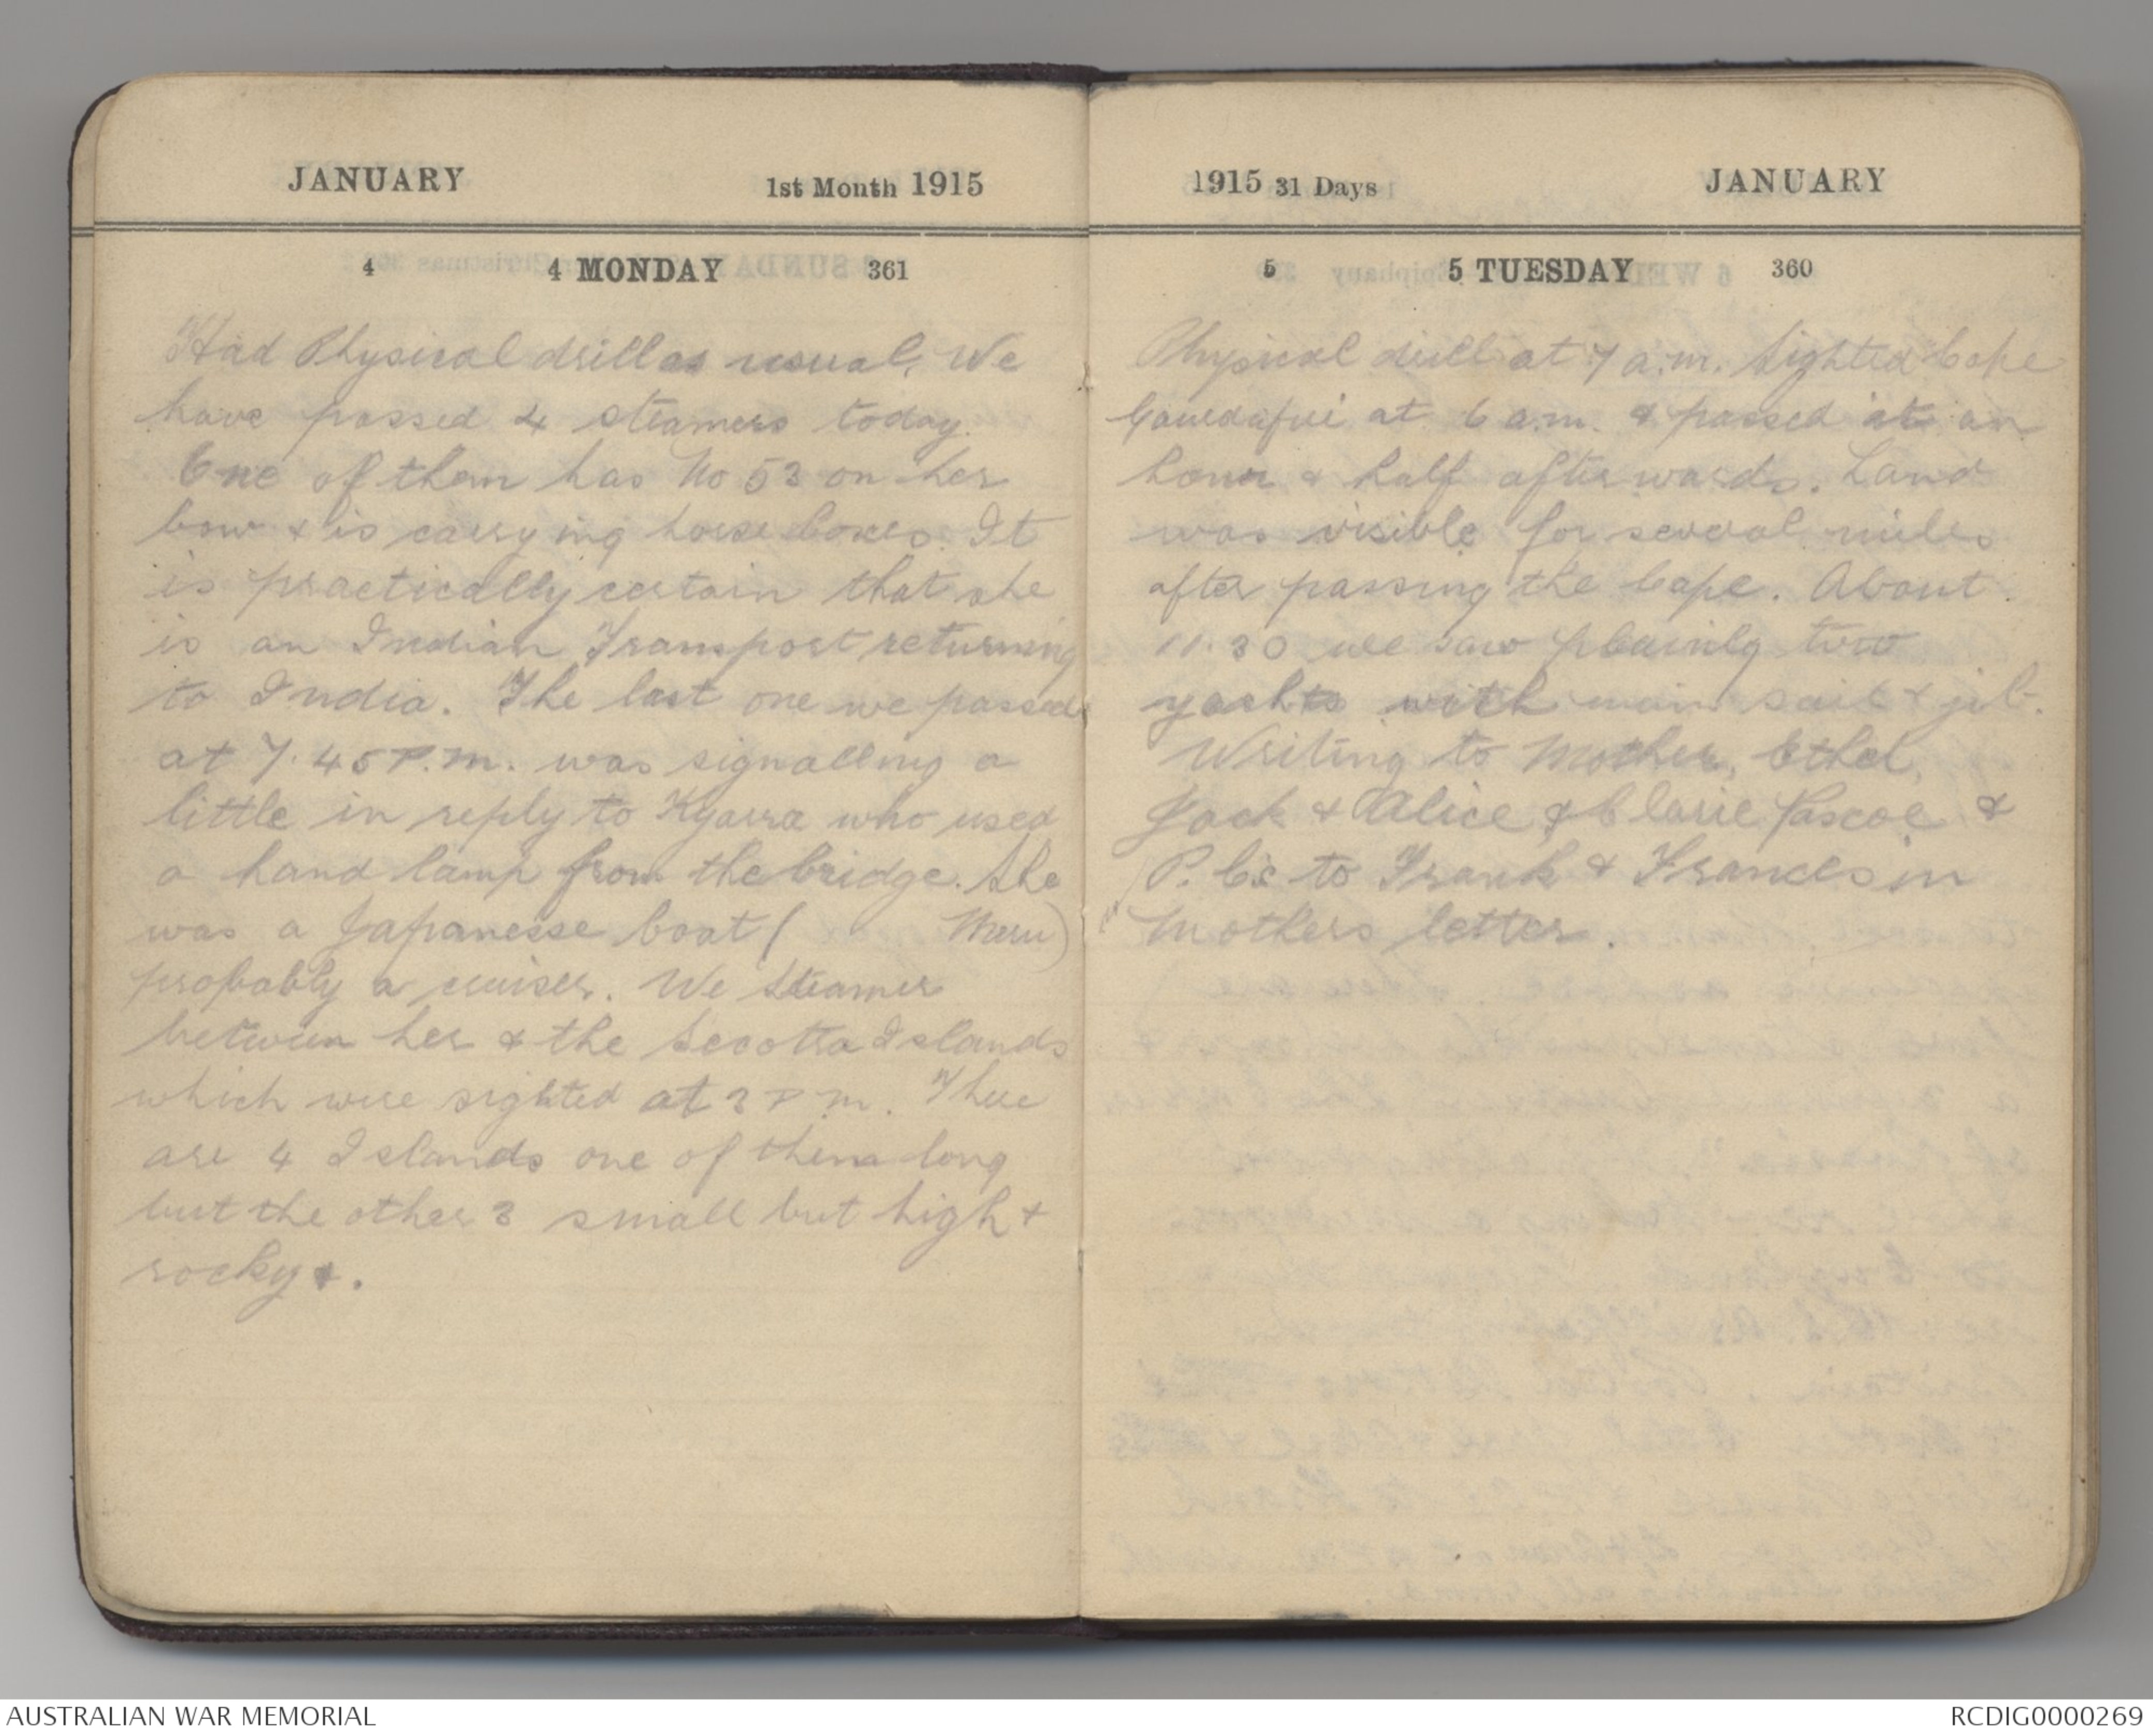 JANUARY 1st Month 1915
4 4 MONDAY 361
Had Physical drill as usual. We
have passed 4 steamers today.
One of them has No 53 on her
bow & is carrying horse boxes. It
is practically certain that she
is an Indian Transport returning
to India. The last one we passed
at 7.45 P.m. was signalling a
little in reply to Kyarra who used
a hand lamp from the bridge. She
was a Japanesse boat ( Maru)
probably a cruiser. We steamer
between her & the Secotra Islands
which were sighted at 3 P.m. There
are 4 Islands one of them long
but the other 3 small but high &
rocky &.
1915 31 Days JANUARY
5 5 TUESDAY 360
Physical drill at 7 a.m. Sighted Cape
Gaurdafui at 6 a.m. & passed it an
hour & half afterwards. Land
was visible for several miles
after passing the Cape. About
11.30 we saw plainly two
yachts with main sail & jib.
Writing to Mother, Ethel,
Jack & Alice & Clarie Pascoe &
P. Cs to Frank & Frances in
Mothers letter.
AUSTRALIAN WAR MEMORIAL
RCDIG0000269